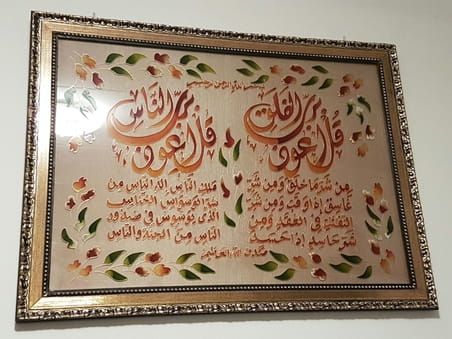 بسم الله الرحمن الرحيم
قل أعوذ برب الفلق
من شر ما خلق ومن شر
غاسق إذا وقب ومن شر
النفثت في العقد ومن
شر حاسد إذا حسد
قل أعوذ برب الناس
ملك الناس اله الناس من
شر الوسواس الخناس
الذي يوسوس في صدور
الناس من الجنة والناس
صدق الله العظيم